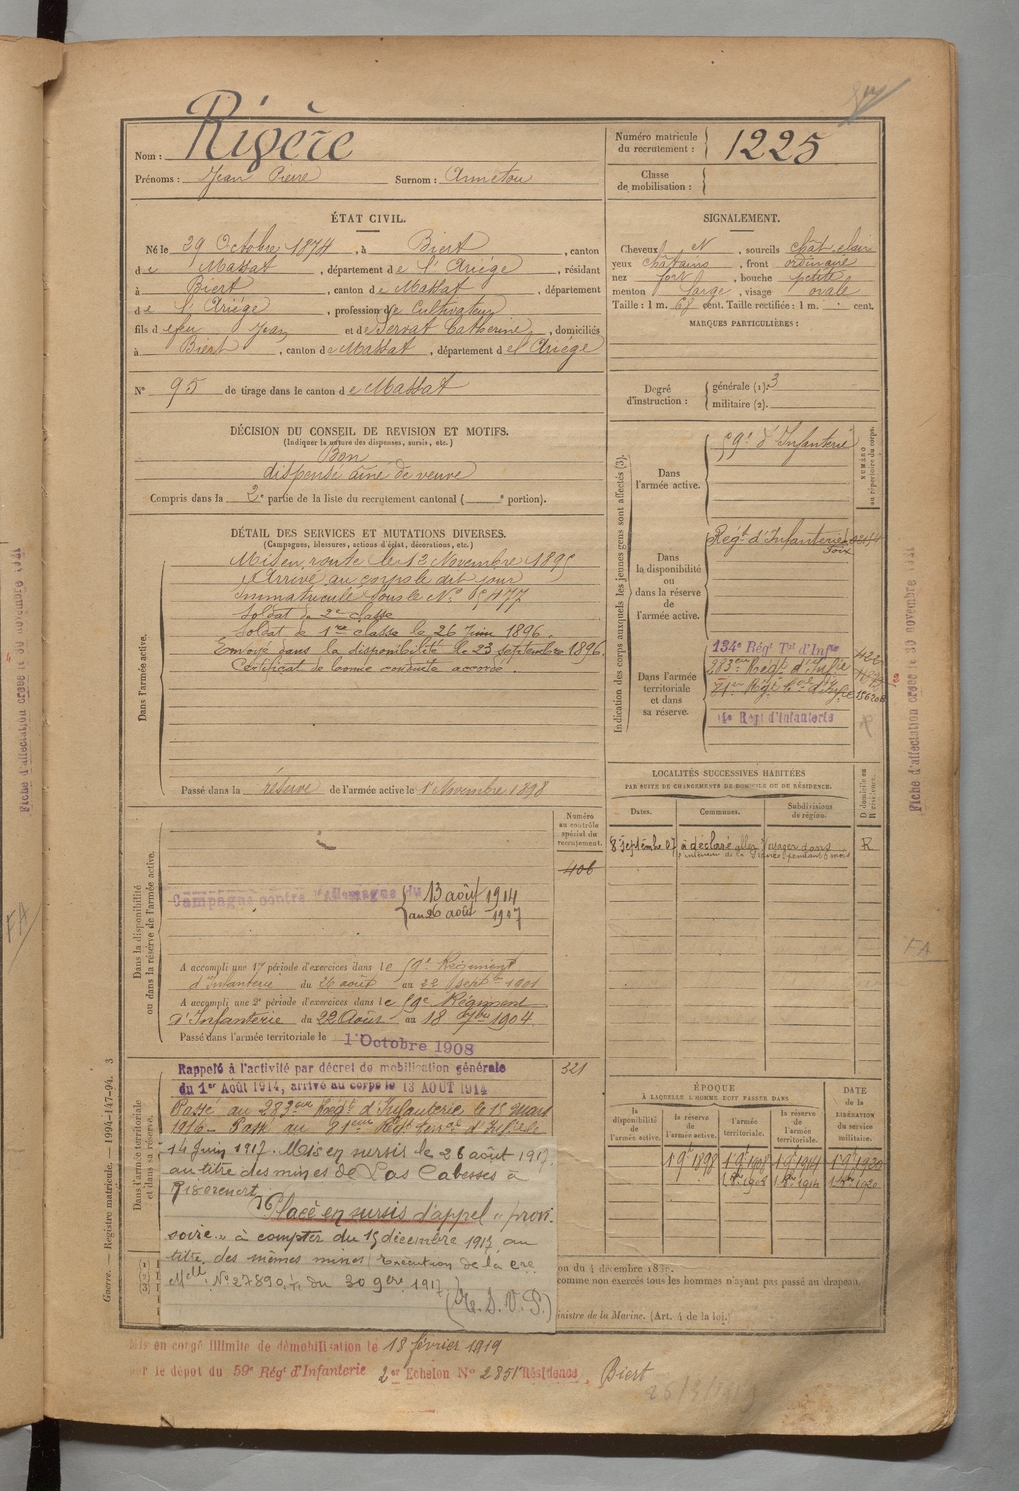 Nom : Rigère
Prénoms : Jean Pierre Surnom : Anneton
Numéro matricule du recrutement : 1225
Classe de mobilisation :
ÉTAT CIVIL.
Né le 29 Octobre 1874, à Biert, canton
de Massat, département de l'Ariége, résidant
à Biert, canton de Massat, département
de l'Ariége, profession de Cultivateur
fils de feu Jean et de Servat Catherine, domiciliés
à Biert, canton de Massat, département de l'Ariége
N° 95 de tirage dans le canton de Massat
SIGNALEMENT.
Cheveux N, sourcils chât. clair
yeux châtains, front ordinaire
nez fort, bouche petite
menton large, visage ovale
Taille : 1 m. 68 cent. Taille rectifiée : 1 m. cent.
MARQUES PARTICULIÈRES :
Degré d'instruction : générale (1). 3
militaire (2).
DÉCISION DU CONSEIL DE REVISION ET MOTIFS.
(Indiquer la nature des dispenses, sursis, etc.)
Bon
dispensé aîné de veuve
Compris dans la 2e partie de la liste du recrutement cantonal ( e portion).
DÉTAIL DES SERVICES ET MUTATIONS DIVERSES.
(Campagnes, blessures, actions d'éclat, décorations, etc.)
Dans l'armée active.
Mis en route le 13 Novembre 1895
Arrivé au corps le dit jour
Immatriculé sous le N°
Soldat de 2e classe
Soldat de 1re classe le 26 Juin 1896.
Envoyé dans la disponibilité le 23 septembre 1896.
Certificat de bonne conduite accordé.
Passé dans la réserve de l'armée active le 1er Novembre 1898
Indication des corps auxquels les jeunes gens sont affectés (3).
NUMÉRO au répertoire du corps.
Dans l'armée active.
59e d'Infanterie
Dans la disponibilité ou dans la réserve de l'armée active.
Régt d'Infanterie
Foix
Dans l'armée territoriale et dans sa réserve.
134e Régt Tal d'Infie
283eme Régt d'Infie
Régt d'Infanterie
LOCALITÉS SUCCESSIVES HABITÉES
PAR SUITE DE CHANGEMENTS DE DOMICILE OU DE RÉSIDENCE.
Dates. Communes. Subdivisions de région. D domicile ou R résidence.
8 Septembre 07 a déclaré aller voyager dans R
pendant 6 mois
Dans la disponibilité ou dans la réserve de l'armée active.
Numéro au contrôle spécial du recrutement.
406
Campagne contre l'Allemagne du 13 août 1914
au 26 août 1917
A accompli une 1re période d'exercices dans le 59e Régiment
d'Infanterie du 26 août au 22 septbre 1901
A accompli une 2e période d'exercices dans le 59e Régiment
d'Infanterie du 22 Août au 18 7bre 1904.
Passé dans l'armée territoriale le 1er Octobre 1908
Dans l'armée territoriale et dans sa réserve.
321
Rappelé à l'activité par décret de mobilisation générale
du 1er Août 1914, arrivé au corps le 13 AOUT 1914
Passé au 283eme Régt d'Infanterie le 15 mars
1916 – Passé au Régt terral d'Infie le
14 Juin 1917. Mis en sursis le 26 août 1917
au titre des mines de Las Cabesses à
Placé en sursis d'appel "provi-
soire" à compter du 15 décembre 1917 au
titre des mêmes mines (Exécution de la cre
Melle N° 27890 du 30 9bre 1917)
ÉPOQUE
À LAQUELLE L'HOMME DOIT PASSER DANS
la disponibilité de l'armée active. la réserve de l'armée active. l'armée territoriale. la réserve de l'armée territoriale.
DATE de la LIBÉRATION du service militaire.
1 9bre 1898 1 9bre 1908 1 9bre 1914 1 9bre 1920
1 8bre 1908 1 8bre 1914 1 8bre 1920
comme non exercés tous les hommes n'ayant pas passé au drapeau.
inistre de la Marine. (Art. 4 de la loi.)
Guerre. — Registre matricule. — 1994-147-94. 3
Mis en congé illimité de démobilisation le 18 février 1919
par le dépôt du 59e Régt d'Infanterie 2er Echelon N° 2851 Résidence, Biert
Fiche d'affectation créée le 30 novembre
FA